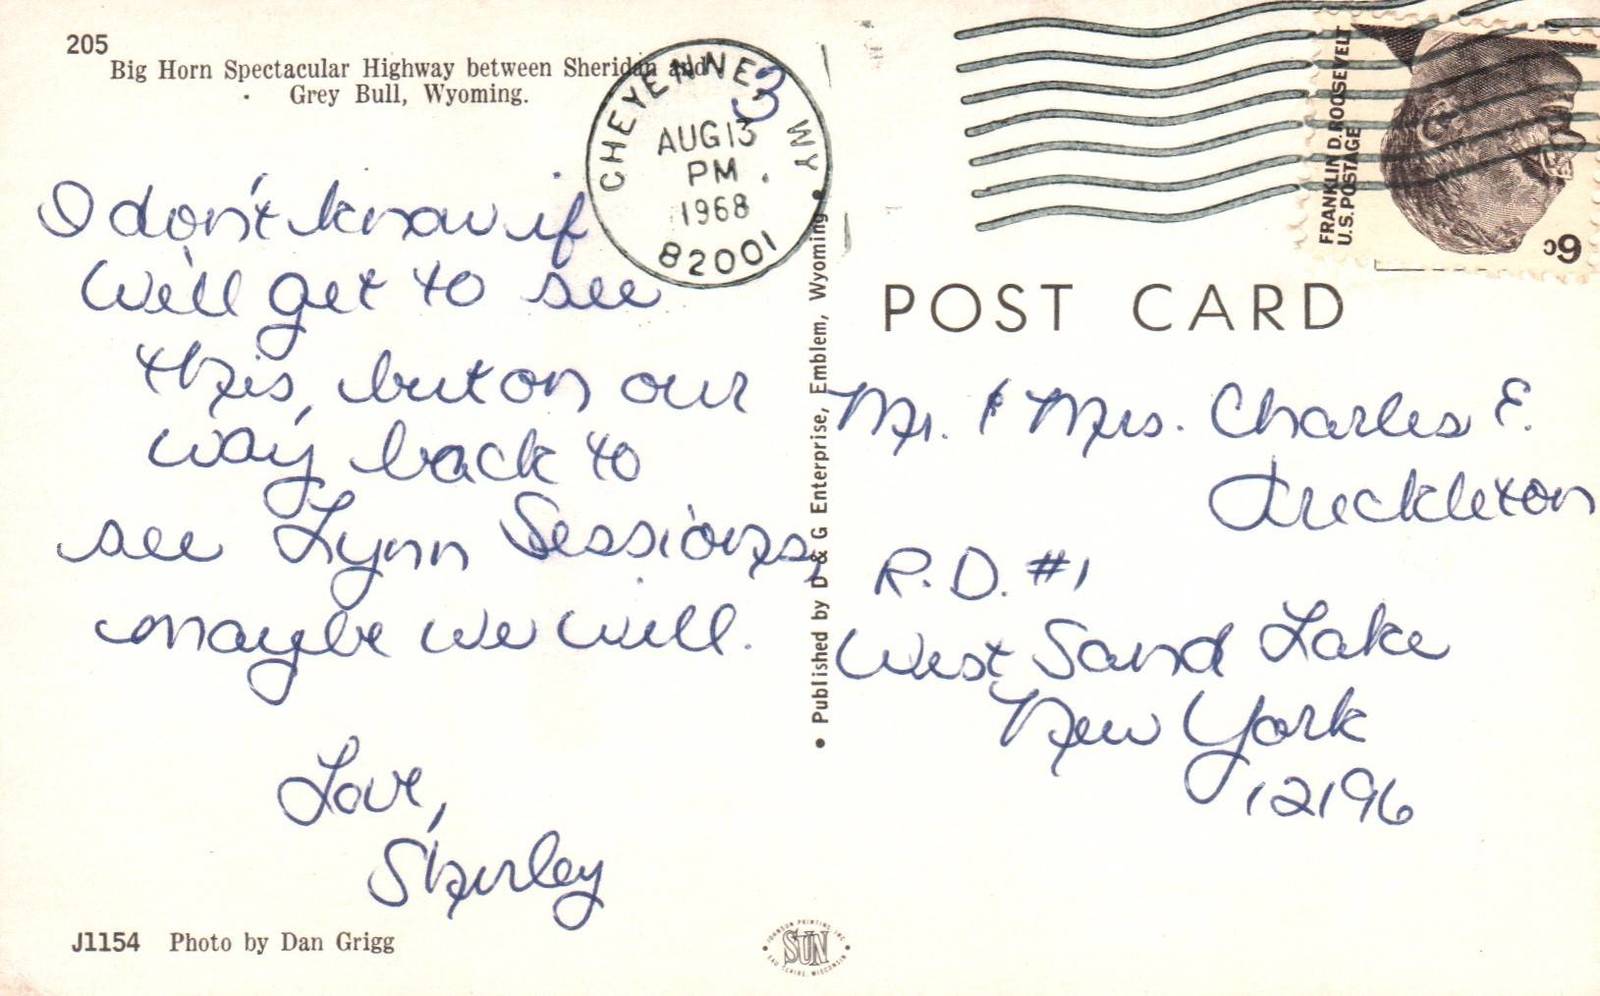 205
Big Horn Spectacular Highway between Sheridan and
Grey Bull, Wyoming.
I don't know if
we'll get to see
this, but on our
way back to
see Lynn Sessions,
maybe we will.
Love,
Shirley
J1154 Photo by Dan Grigg
CHEYENNE WY
AUG 13
PM
1968
82001
3
• Published by D & G Enterprise, Emblem, Wyoming •
JOHNSON PRINTING INC.
SUN
EAU CLAIRE, WISCONSIN
FRANKLIN D. ROOSEVELT
U.S. POSTAGE
6c
POST CARD
Mr. & Mrs. Charles E.
Treckleton
R.D. #1
West Sand Lake
New York
12196